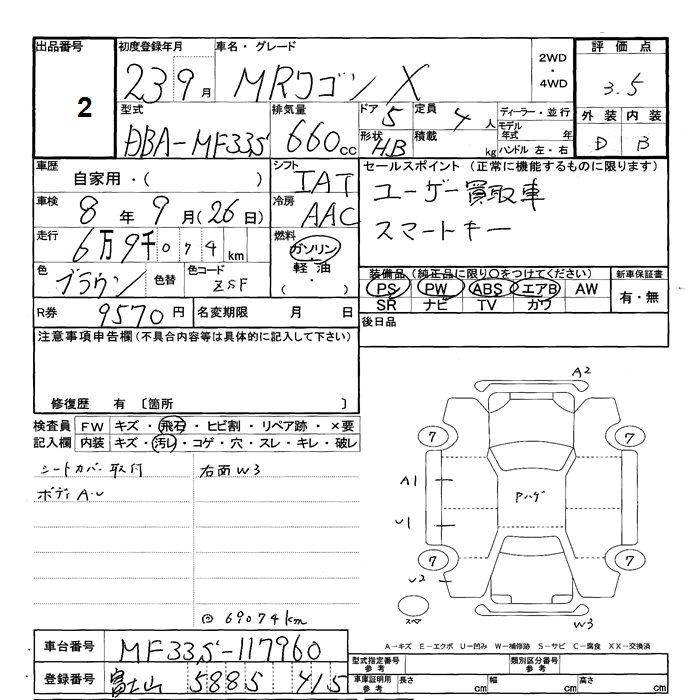 出品番号 初度登録年月 車名・グレード 2WD・4WD 評価点
2 23 9月 MRワゴン X 3.5
型式 排気量 ドア 5 定員 4人 ディーラー・並行 外装 内装
DBA-MF33S 660cc 形状 HB 積載 kg モデル年式 年 ハンドル 左・右 D B
車歴 自家用・( ) シフト IAT セールスポイント (正常に機能するものに限ります)
車検 8年 9月 (26日) 冷房 AAC ユーザー買取車
走行 6万9千074km 燃料 ガソリン 軽油 ・( ) スマートキー
色 ブラウン 色替 色コード ZSF 装備品 (純正品に限り○をつけてください) 新車保証書
PS PW ABS エアB AW 有・無
SR ナビ TV カワ
R券 9570円 名変期限 月 日 後日品
注意事項申告欄(不具合内容等は具体的に記入して下さい)
修復歴 有 〔箇所 〕
検査員 FW キズ・飛石・ヒビ割・リペア跡・×要
記入欄 内装 キズ・汚レ・コゲ・穴・スレ・キレ・破レ
シートカバー取付 右面W3
ボディA・U
走69074km
A2
7 7
A1
Pハゲ
U1
7 7
U2
スペア
W3
A-キズ E-エクボ U-凹み W-補修跡 S-サビ C-腐食 XX-交換済
車台番号 MF33S-117960 型式指定番号 参考 類別区分番号 参考
登録番号 富士山 5885 415 車庫証明用 参考 長さ cm 幅 cm 高さ cm